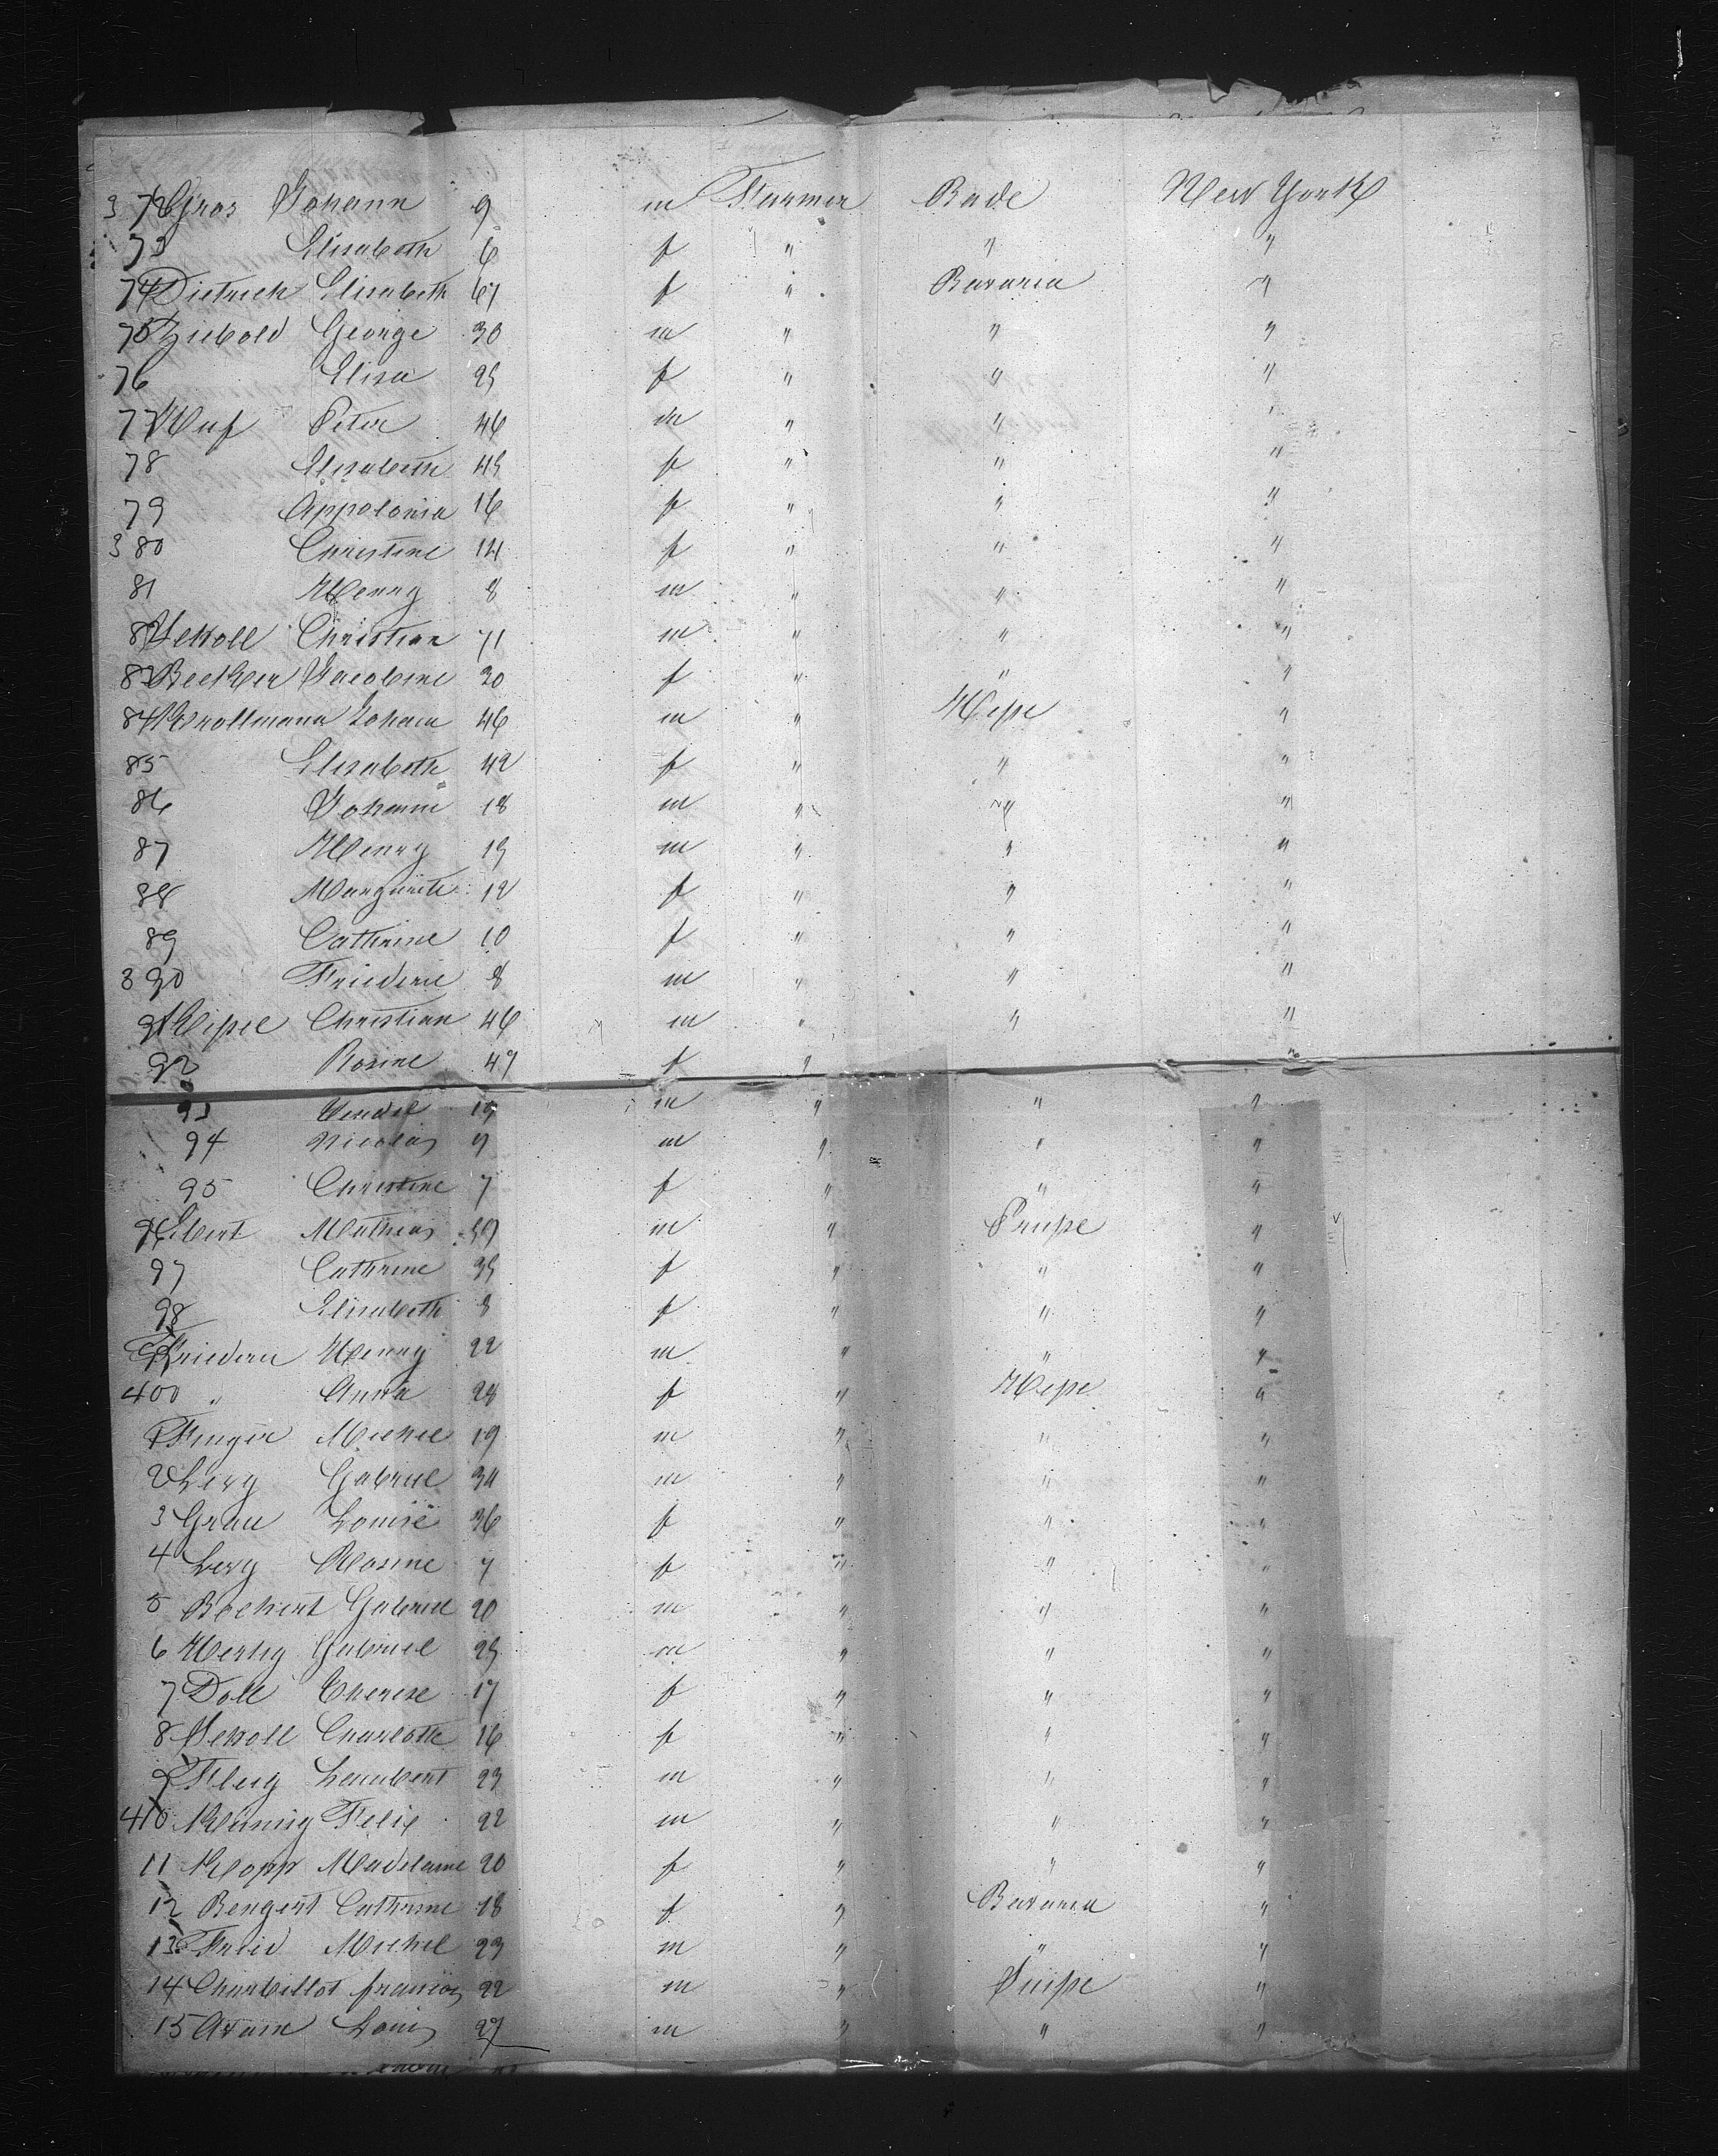 3 72 Gros Johann 9 m Farmer Bade New York
73 Elisabeth 6 f " " "
74 Dietrich Elisabeth 67 f " Bavaria "
75 Ziebold George 30 m " " "
76 Elisa 25 f " " "
77 Huf Peter 46 m " " "
78 Elisabeth 45 f " " "
79 Appolonia 16 f " " "
3 80 Christine 14 f " " "
81 Henry 8 m " " "
82 Scholl Christian 71 m " " "
83 Becker Jacobine 20 f " " "
84 Krollmann Johann 46 m " Hesse "
85 Elisabeth 42 f " " "
86 Johann 18 m " " "
87 Henry 15 m " " "
88 Marguerite 12 f " " "
89 Cathrine 10 f " " "
3 90 Friederic 8 m " " "
91 Christian 46 m " " "
92 Rosine 47 f " " "
93 15 m " " "
94 Nicolas 9 m " " "
95 Christine 7 f " " "
96 Ebert Mathias 39 m " Prusse "
97 Cathrine 35 f " " "
98 Elisabeth 8 f " " "
99 Henry 22 m " " "
400 " Anna 28 f " Hesse "
1 Michel 19 m " " "
2 Levy Gabriel 34 m " " "
3 Grau Louise 36 f " " "
4 Levy Rosine 7 f " " "
5 Bechert Gabriel 20 m " " "
6 Gabriel 25 m " " "
7 Doll Therese 17 f " " "
8 Scholl Charlotte 16 f " " "
9 Flug Lambert 23 m " " "
410 Felix 22 m " " "
11 Klopp Madelaine 20 f " " "
12 Bengert Cathrine 18 f " Bavaria "
13 Fried Michel 23 m " " "
14 Charbillot francois 22 m " Suisse "
15 Adam Louis 27 m " " "